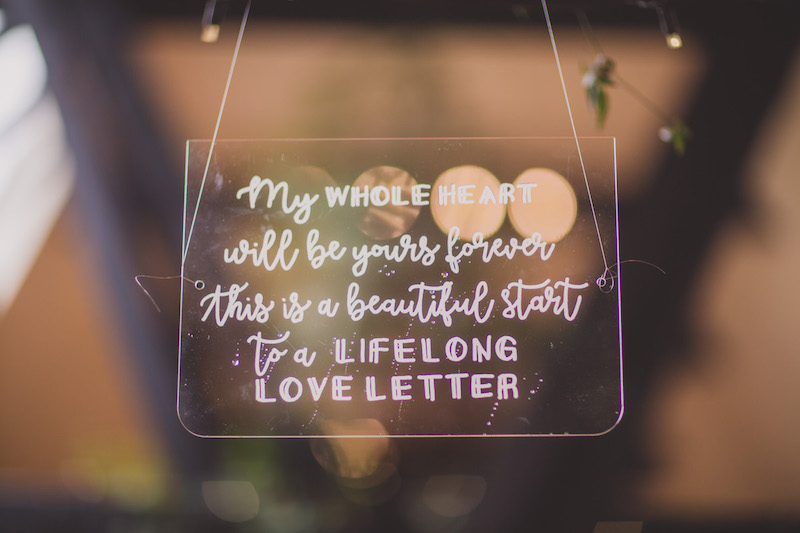 My WHOLE HEART
will be yours forever
this is a beautiful start
to a LIFELONG
LOVE LETTER